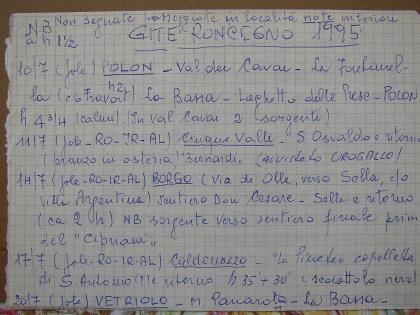 N.B Non segnate passeggiate in località note inferiori
a h 1½
GITE RONCEGNO 1995
10/7 (sole) POLON - Val dei Cavai - La Fontanel-
la (ca Travort) h2 - La Bassa - Laghetto delle Prese - POLON
h 4 3/4 (calmi). In val Cavai 2 sorgenti)
11/7 (sole - RO-IR-AL) Cinque Valli - S Osvaldo e ritorno
(pranzo in osteria) "Bernardi" (avvistato UROGALLO)
14/7 (sole-RO-IR-AL) BORGO (via di Olle, verso Sella, c/o
villa Argentina) sentiero Don Cesare - Sella e ritorno
(ca 2 h) NB sorgente verso sentiero finale prim
del "Cipriani"
17/7 (sole-RO-IR-AL) Caldonazzo - "La Pineta" cappelletta
di S Antonio (?) e ritorno h 35' + 30' (scoiattolo nero)
20/7 (sole) VETRIOLO - M. Panarotta - La Bassa -